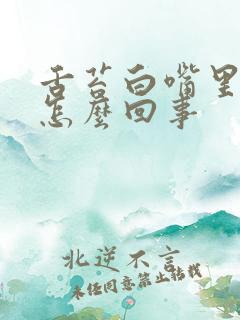 舌苔白嘴里
怎麽回事
北逆不言
未经同意禁止转载